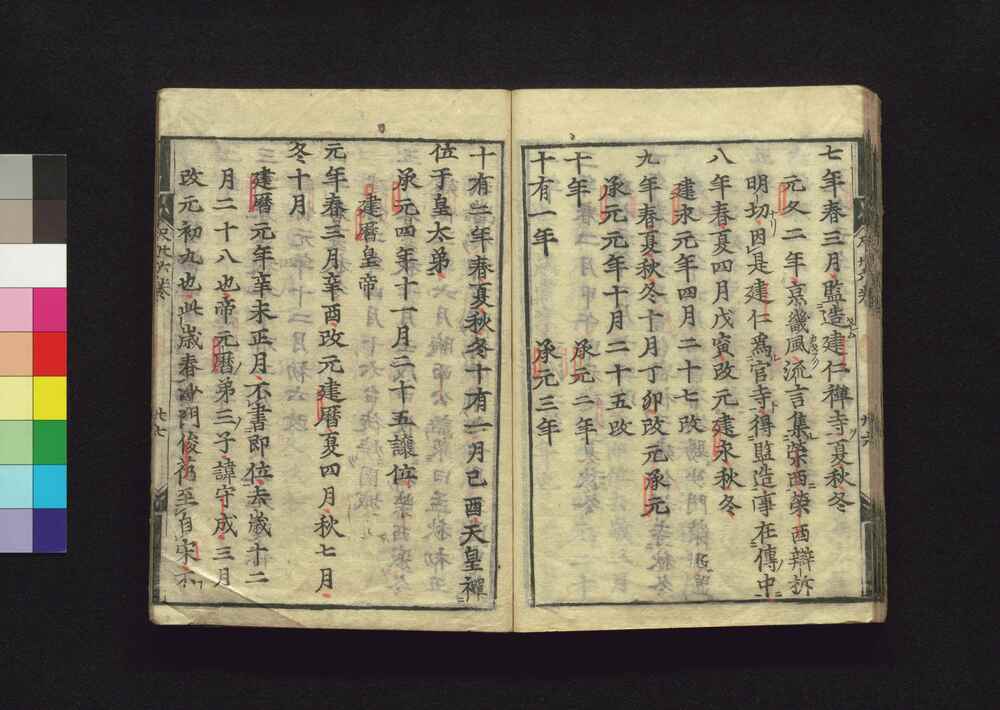 七年春三月監造建仁禅寺夏秋冬
元久二年京畿風流言集榮西榮西辯折
明切因是建仁爲官寺得監造事在傳中
八年春夏四月戊寅改元建永秋冬
建永元年四月二十七改
九年春夏秋冬十月丁卯改元承元
承元元年十月二十五改
十年 承元二年
十有一年 承元三年
廿六
十有二年春夏秋冬十有一月己酉天皇禅
位于皇太弟
承元四年十一月二十五讓位
建曆皇帝
元年春三月辛酉改元建曆夏四月秋七月
冬十月
建曆元年辛未正月不書即位去歲十二
月二十八也帝元曆弟三子諱守成三月
改元初九也此歲春沙門俊芿至自宋
廿七